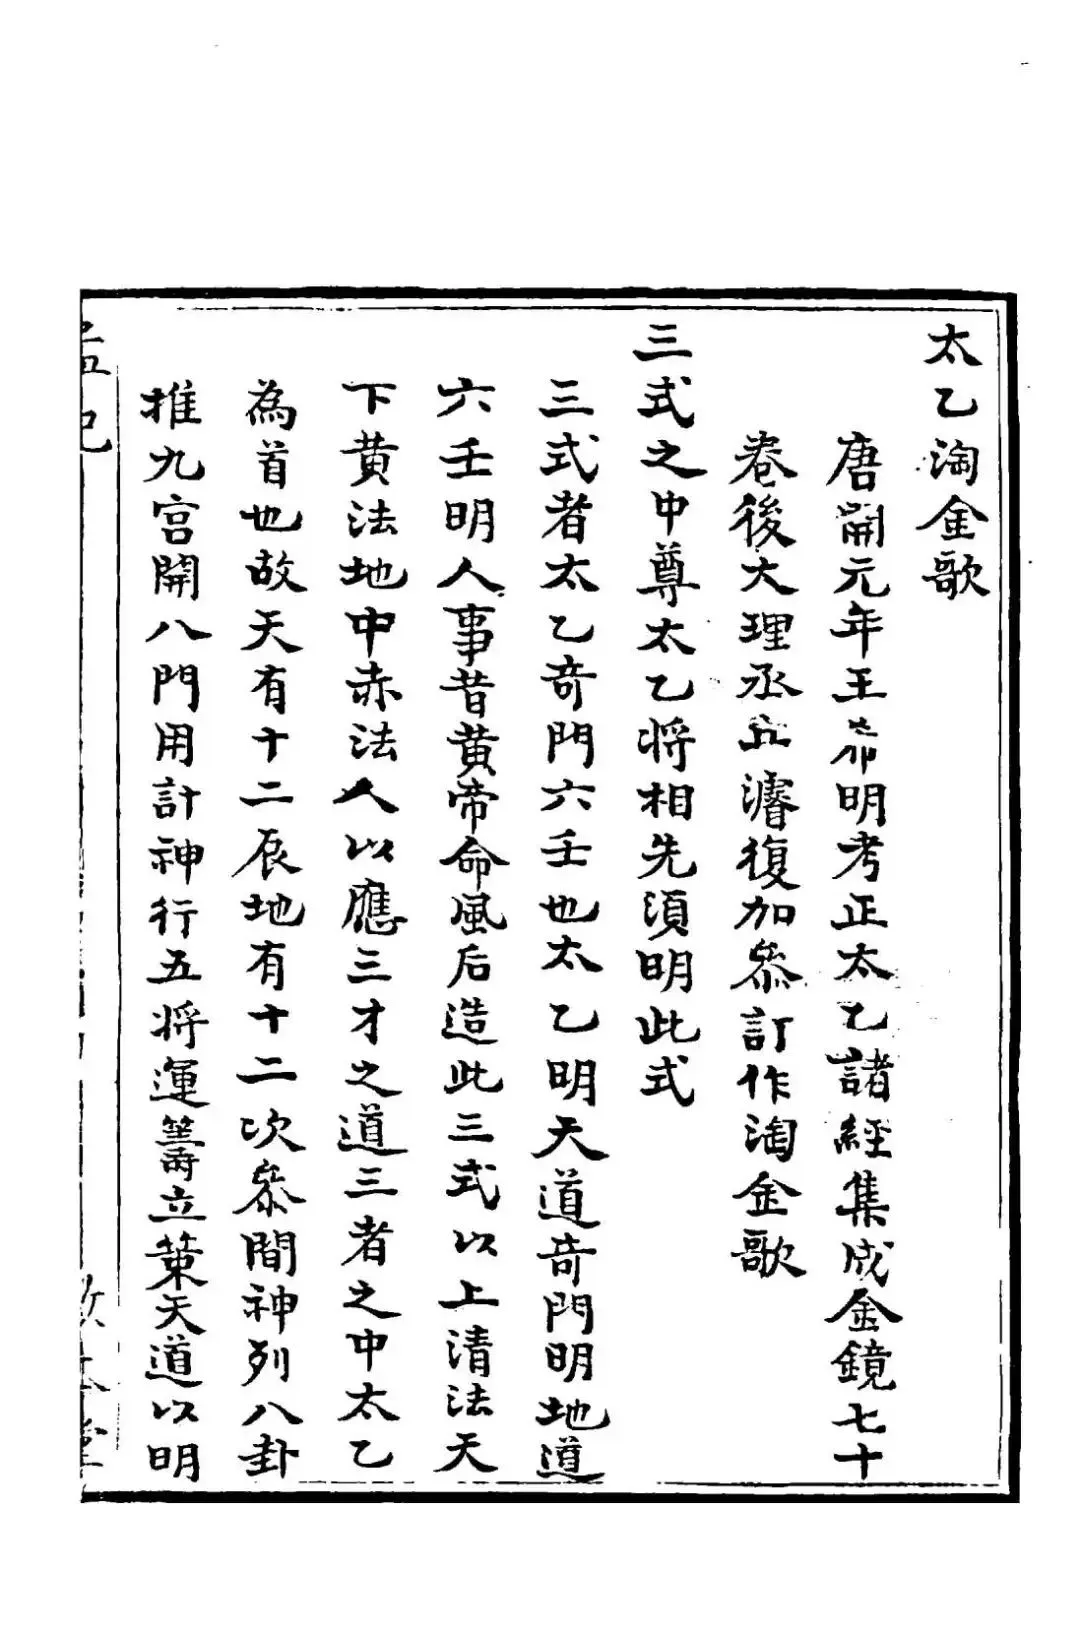 太乙淘金歌
唐開元年王希明考正太乙諸經集成金鏡七十
卷後大理丞丘濬復加叅訂作淘金歌
三式之中尊太乙將相先須明此式
三式者太乙奇門六壬也太乙明天道奇門明地道
六壬明人事昔黃帝命風后造此三式以上清法天
下黃法地中赤法人以應三才之道三者之中太乙
為首也故天有十二辰地有十二次叅間神列八卦
推九宮開八門用計神行五將運籌立策天道以明